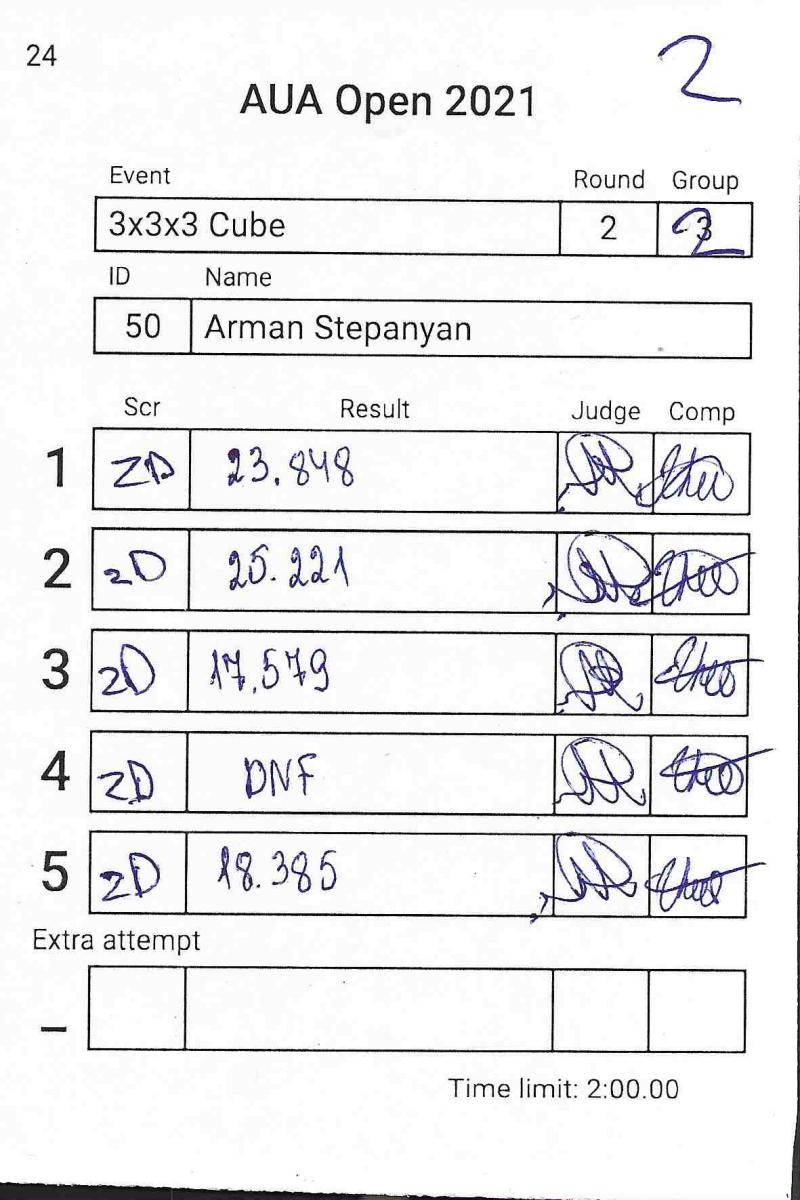 24
2
AUA Open 2021
Event Round Group
3x3x3 Cube 2 2
ID Name
50 Arman Stepanyan
Scr Result Judge Comp
1 ZD 23.848
2 ZD 25.221
3 ZD 17.579
4 ZD DNF
5 ZD 18.385
Extra attempt
–
Time limit: 2:00.00